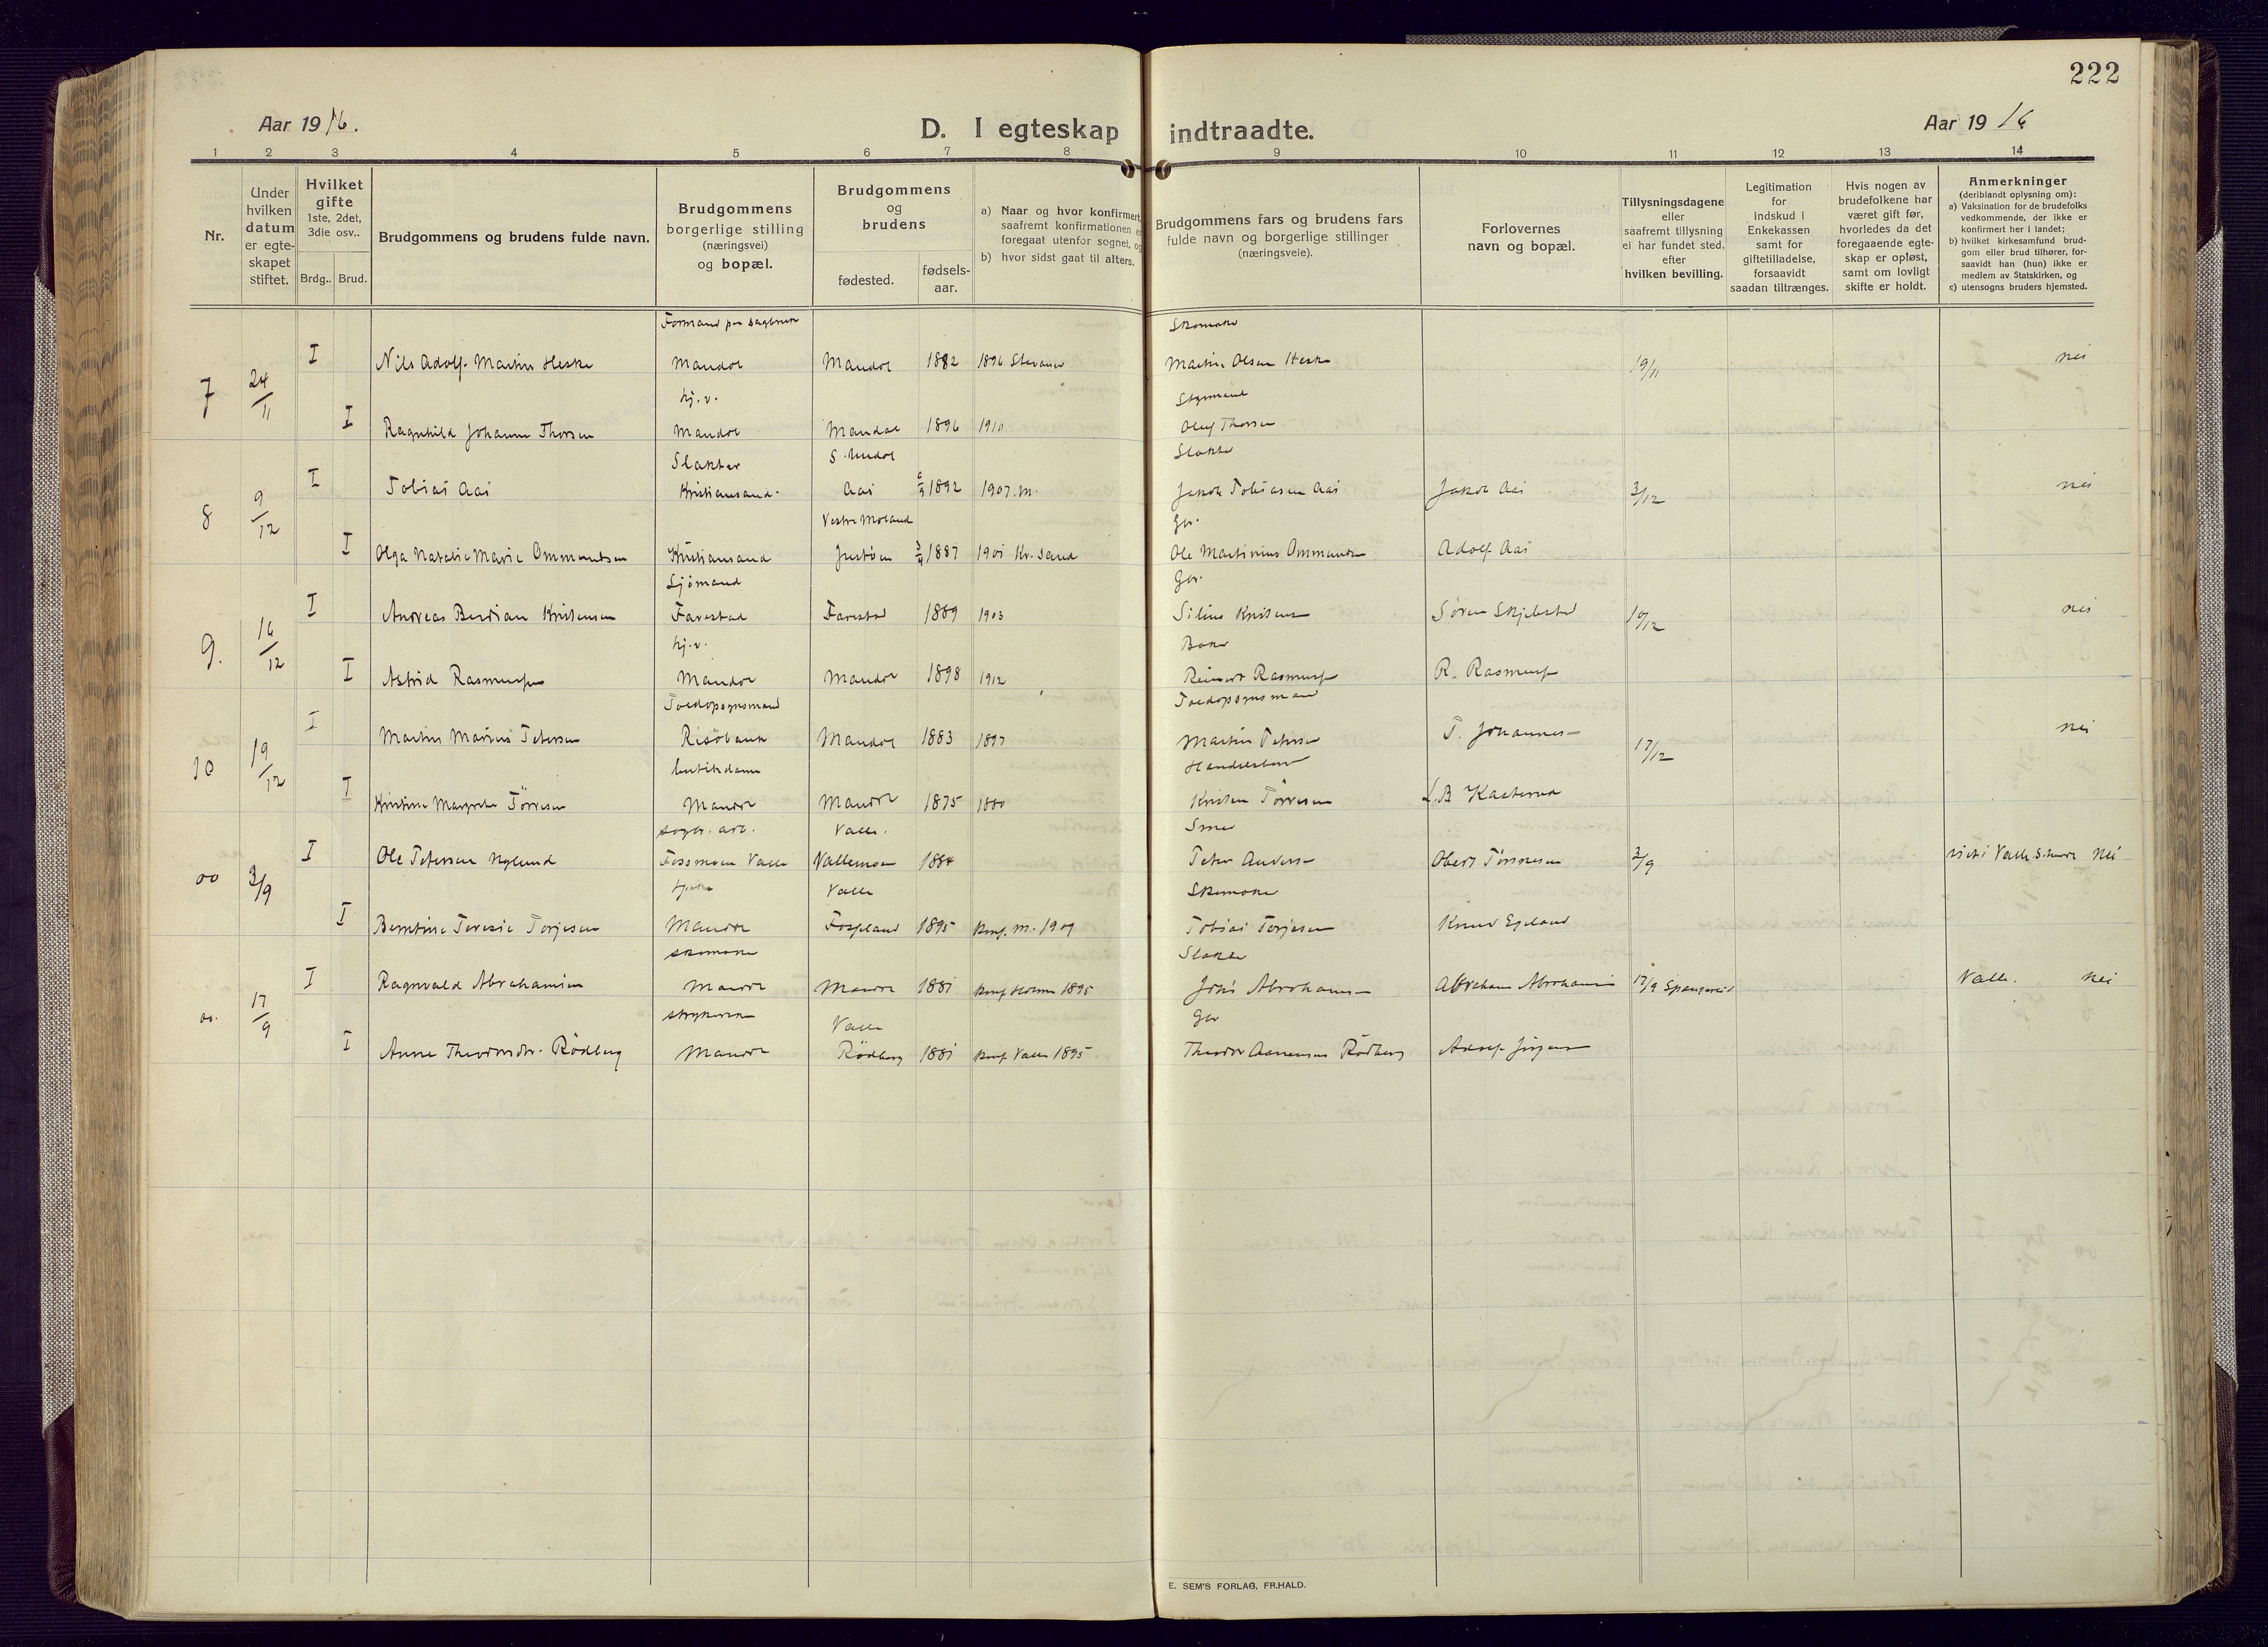 222
Aar 1916.
D. I egteskap indtraadte.
Aar 1916
1 2 3 4 5 6 7 8 9 10 11 12 13 14
Nr.
Under hvilken datum er egteskapet stiftet.
Hvilket gifte 1ste, 2det, 3die osv..
Brdg.. Brud.
Brudgommens og brudens fulde navn.
Brudgommens borgerlige stilling (næringsvei) og bopæl.
Brudgommens og brudens
fødested. fødsels-aar.
a) Naar og hvor konfirmert, saafremt konfirmationen er foregaat utenfor sognet, og
b) hvor sidst gaat til alters.
Brudgommens fars og brudens fars fulde navn og borgerlige stillinger (næringsveie).
Forlovernes navn og bopæl.
Tillysningsdagene eller saafremt tillysning ei har fundet sted, efter hvilken bevilling.
Legitimation for indskud i Enkekassen samt for giftetilladelse, forsaavidt saadan tiltrænges.
Hvis nogen av brudefolkene har været gift før, hvorledes da det foregaaende egteskap er opløst, samt om lovligt skifte er holdt.
Anmerkninger (deriblandt oplysning om):
a) Vaksination for de brudefolks vedkommende, der ikke er konfirmert her i landet;
b) hvilket kirkesamfund brudgom eller brud tilhører, forsaavidt han (hun) ikke er medlem av Statskirken, og
c) utensogns bruders hjemsted.
Formand paa Sagbruk Skomaker
7 24/11 I Nils Adolf Martin Heske Mandal Mandal 1882 1896 Stavanger Martin Olsen Heske 19/11 nei
hj. v. Styrmand
I Ragnhild Johanne Thorsen Mandal Mandal 1896 1910 Oluf Thorsen
Slakter S. Undal Slakter
8 9/12 I Tobias Aas Kristiansand Aas 6/9 1892 1907. M. Jakob Tobiasen Aas Jakob Aas 3/12 nei
Vestre Moland Gbr.
I Olga Natalie Marie Ommundsen Kristiansand Justöen 3/4 1887 1901 Kr.sand Ole Martinius Ommundsen Adolf Aas
Sjömand Gbr.
9. 16/12 I Andreas Berdian Kristensen Farestad Farestad 1889 1903 Silius Kristensen Sören Skjelstad 10/12 nei
hj. v. Baker
I Astrid Rasmussen Mandal Mandal 1898 1912 Reinert Rasmussen R. Rasmussen
Toldopsynsmand Toldopsynsmand
10 19/12 I Martin Marius Petersen Risöbank Mandal 1883 1897 Martin Petersen T. Johannes 17/12 nei
butikdame Handelsbest.
I Kristine Margrethe Törresen Mandal Mandal 1875 1880 Kristen Törresen L.B Kasterud
sagbr. arb. Valle. Smed
oo 3/9 I Ole Petersen Nylund Fossmoen Valle Vallemoen 1884 Peter Andersen Obert Tönnesen 3/9 viet i Valle S. Undal Nei
Valle Skomaker
I Berntine Teresie Torjesen Mandal Fospland 1895 konf. M. 1909 Tobias Torjesen Knud Egeland
skomaker Slakter
oo. 17/9 I Ragnvald Abrahamsen Mandal Mandal 1881 konf Holum 1895 Jons Abrahamsen Abraham Abrahamsen 17/9 Spangereid Valle. Nei
strykerske Valle Gbr
I Anne Theodorsdtr. Rödberg Mandal Rödberg 1881 konf Valle 1895 Theodor Aanensen Rödberg Adolf Jörgensen
E. SEM'S FORLAG, FR.HALD.